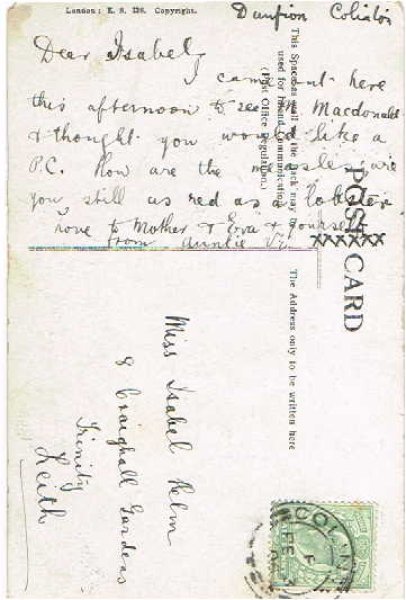 London: E. S. 126. Copyright.
Colinton
Dear Isabel,
I came out here
this afternoon to see M Macdonald
& thought you would like a
P.C. How are the measles, are
you still as red as a lobster
Love to Mother & Eva & yourself
from Auntie
xxxxxxx
This Space as well as the back may be
used for Inland Communication.
(Post Office Regulation.)
POST CARD
The Address only to be written here
Miss Isabel Helm
8 Craighall Gardens
Trinity
Leith
COLIN
FE